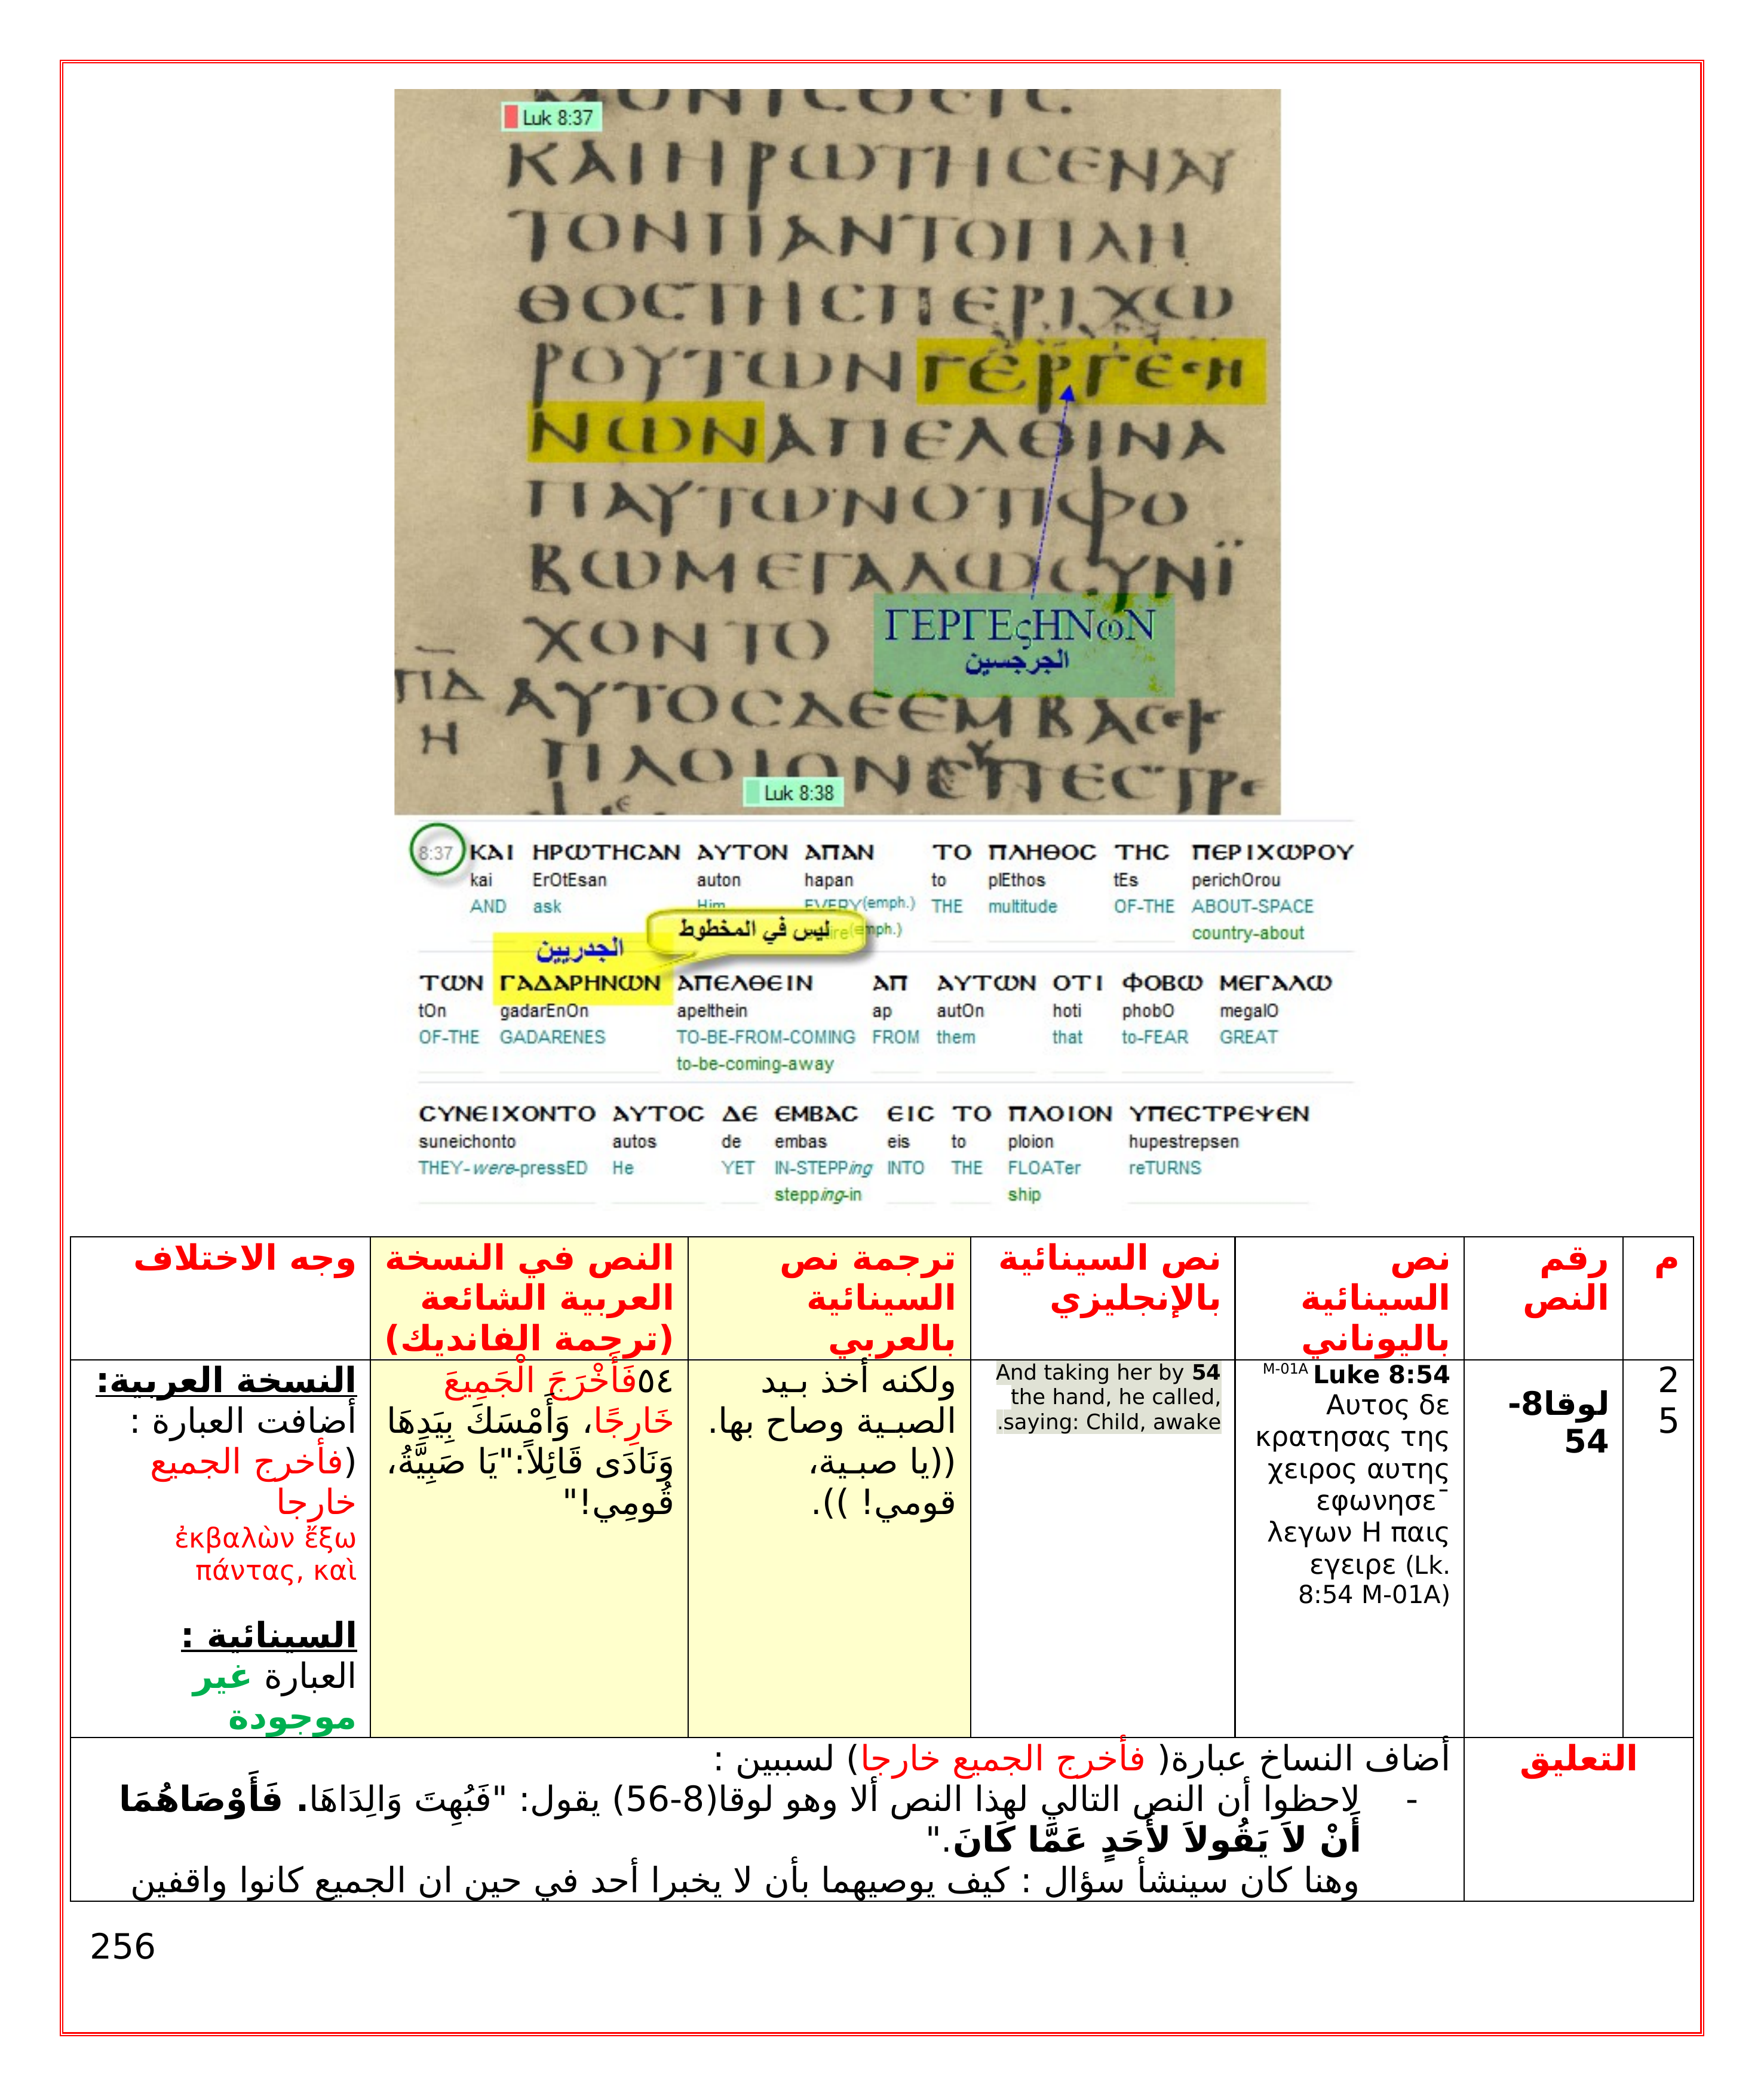 Luk 8:37
ΚΑΙΗΡΩΤΗϹΕΝΑΥ
ΤΟΝΠΑΝΤΟΠΛΗ
ΘΟϹΤΗϹΠΕΡΙΧΩ
ΡΟΥΤΩΝΓΕΡΓΕϹΗ
ΝΩΝΑΠΕΛΘΙΝΑ
ΠΑΥΤΩΝΟΤΙΦΟ
ΒΩΜΕΓΑΛΩϹΥΝΪ
ΧΟΝΤΟ
ΓΕΡΓΕςΗΝωΝ
الجرجسين
ΠΔ
Η
ΑΥΤΟϹΔΕΕΜΒΑϹΕΙϹ
ΠΛΟΙΟΝ
Luk 8:38
8:37 ΚΑΙ ΗΡΩΤΗϹΑΝ ΑΥΤΟΝ ΑΠΑΝ ΤΟ ΠΛΗΘΟϹ ΤΗϹ ΠΕΡΙΧΩΡΟΥ
kai ErOtEsan auton hapan to plEthos tEs perichOrou
AND ask Him EVERY(emph.) THE multitude OF-THE ABOUT-SPACE
country-about
ليس في المخطوط
الجدريين
ΤΩΝ ΓΑΔΑΡΗΝΩΝ ΑΠΕΛΘΕΙΝ ΑΠ ΑΥΤΩΝ ΟΤΙ ΦΟΒΩ ΜΕΓΑΛΩ
tOn gadarEnOn apelthein ap autOn hoti phobO megalO
OF-THE GADARENES TO-BE-FROM-COMING FROM them that to-FEAR GREAT
to-be-coming-away
ϹΥΝΕΙΧΟΝΤΟ ΑΥΤΟϹ ΔΕ ΕΜΒΑϹ ΕΙϹ ΤΟ ΠΛΟΙΟΝ ΥΠΕϹΤΡΕΨΕΝ
suneichonto autos de embas eis to ploion hupestrepsen
THEY-were-pressED He YET IN-STEPPing INTO THE FLOATer reTURNS
stepping-in ship
م
رقم
النص
نص
السينائية
باليوناني
نص السينائية
بالإنجليزي
ترجمة نص
السينائية
بالعربي
النص في النسخة
العربية الشائعة
(ترجمة الفانديك)
وجه الاختلاف
2
5
لوقا8-
54
M-01A Luke 8:54
Αυτος δε
κρατησας της
χειρος αυτης
εφωνησε¯
λεγων Η παις
εγειρε (Lk.
8:54 M-01A)
And taking her by 54
the hand, he called,
saying: Child, awake.
ولكنه أخذ بـيد
الصبـية وصاح بها.
((يا صبـية،
قومي! )).
٥٤فَأَخْرَجَ الْجَمِيعَ
خَارِجًا، وَأَمْسَكَ بِيَدِهَا
وَنَادَى قَائِلاً:"يَا صَبِيَّةُ،
قُومِي!"
النسخة العربية:
أضافت العبارة :
(فأخرج الجميع
خارجا
ἐκβαλὼν ἔξω
πάντας, καὶ
السينائية :
العبارة غير
موجودة
التعليق
أضاف النساخ عبارة( فأخرج الجميع خارجا) لسببين :
- لاحظوا أن النص التالي لهذا النص ألا وهو لوقا(8-56) يقول: "فَبُهِتَ وَالِدَاهَا. فَأَوْصَاهُمَا
أَنْ لاَ يَقُولاَ لأَحَدٍ عَمَّا كَانَ."
وهنا كان سينشأ سؤال : كيف يوصيهما بأن لا يخبرا أحد في حين ان الجميع كانوا واقفين
256